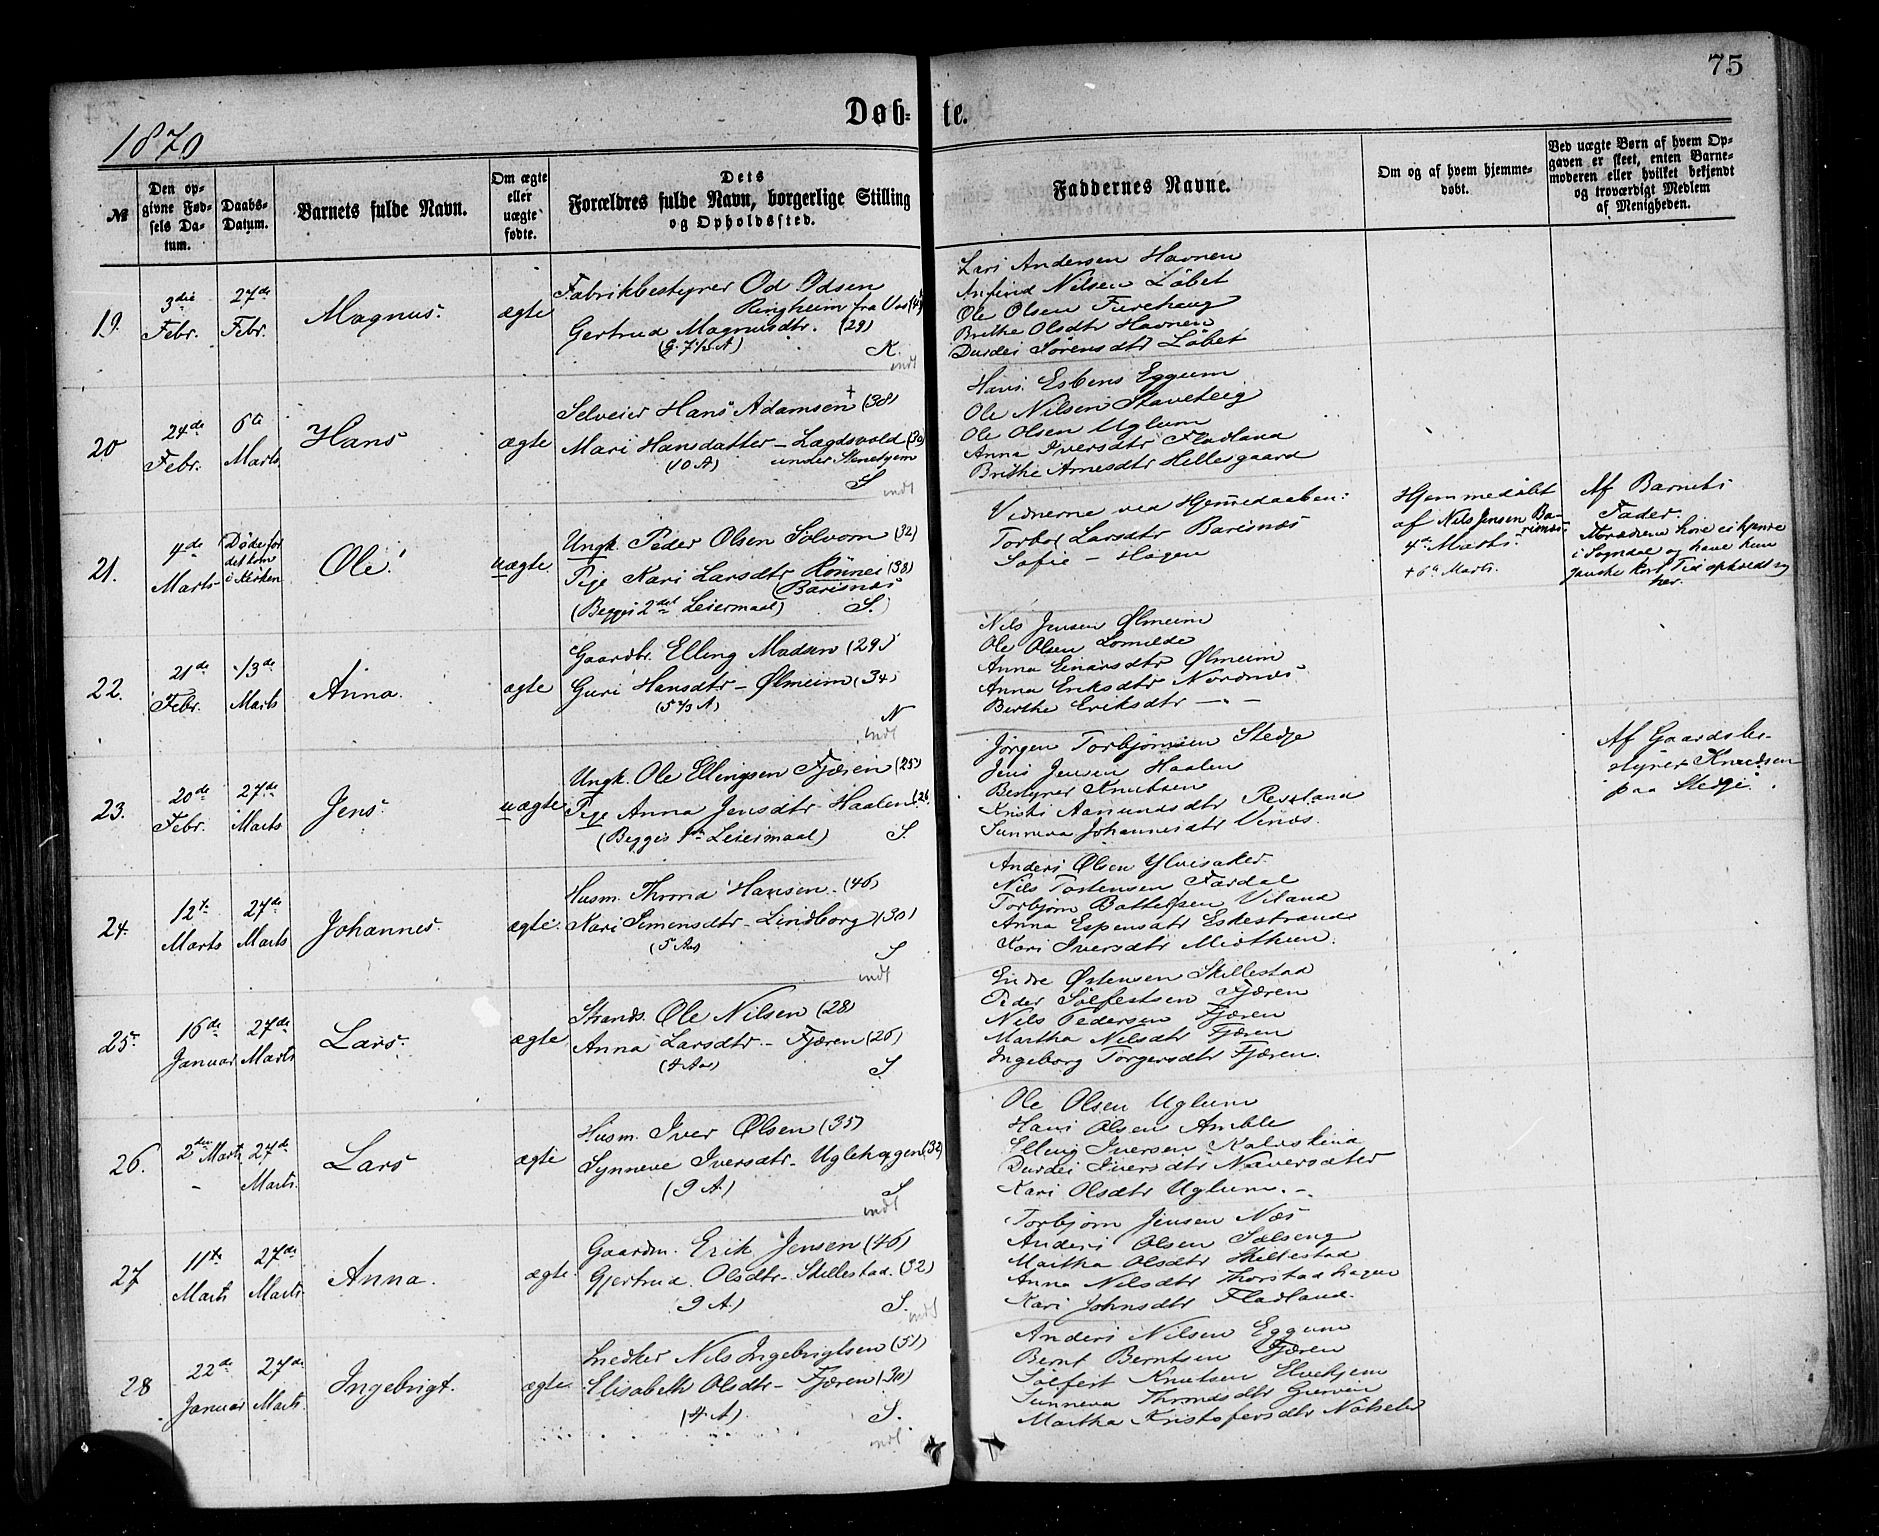 75
Døb- te.
1870
№
Den opgivne Fødsels Datum.
Daabs-Datum.
Barnets fulde Navn.
Om ægte eller uægte fødte.
Dets Forældres fulde Navn, borgerlige Stilling og Opholdssted.
Faddernes Navne.
Om og af hvem hjemmedøbt.
Ved uægte Børn af hvem Opgaven er skeet, enten Barnemoderen eller hvilket bekjendt og troværdigt Medlem af Menigheden.
19.
3die Febr.
27de Febr.
Magnus.
ægte
Fabrikbestyrer Od Odsen
Ringheim fra Vos
Gertrud Magnusdtr. (29)
(G. 7½ A)
K.
indt
Lars Andersen Havnen
Anfind Nilsen Løbet
Ole Olsen Furehaug
Brithe Olsdtr Havnen
Durdei Sørensdtr Løbet
20
24de Febr.
6te Marts
Hans
ægte
Selveier Hans Adamsen + (38)
Mari Hansdatter - Lægdsvold (30)
(10 A) under Stenehjem
S
indt
Hans Esbens Eggum
Ole Nilsen Staveteig
Ole Olsen Uglum
Anna Iversdtr Fladland
Brithe Arnesdtr Hellesgaard
21.
4de Marts
Døde før det kom i Kirken
Ole!
uægte
Ungk. Peder Olsen Solvorn (32)
Pige Kari Larsdtr Rønnei (38)
(Barsnæs
(Begges 2det Leiermaal) S.
Vidnerne ved Hjemmedaaben:
Torber Larsdtr Barsnæs
Sofie - Hagen
Hjemmedøbt
af Nils Jensen Barsnæs
4de Marts.
+ 6te Marts.
Af Barnets
Fader.
Forældrene høre ei hjemme
i Sogndal og have kun
ganske kort Tid opholdt sig
her.
22.
21de Febr.
13de Marts
Anna.
ægte
Gaardbr. Elling Madsen (29)
Guri Hansdtr - Ølmeim (34)
(5⅓ A)
N
indt
Nils Jensen Ølmeim
Ole Olsen Lomelde
Anna Einarsdtr Ølmeim
Anna Eriksdtr Nordnæs
Berthe Eriksdtr - " -
23.
20de Febr.
27de Marts
Jens
uægte
Ungk. Ole Ellingsen Fjæren (25)
Pige Anna Jensdtr - Haalen (26
(Begges 1ste Leiermaal) S.
Jørgen Torbjørnsen Stedje
Jens Jensen Haalen
Bestyrer Knutsen
Kristi Aamundsdtr Revland
Sunneva Johannesdtr Vines.
Af Gaardsbestyrer Knudsen
paa Stedje.
24.
12te Marts
27de Marts
Johannes.
ægte.
Husm. Thrond Hansen - (46)
Kari Simensdtr - Lindborg (30)
(5 Aar)
S
indt
Anders Olsen Ylvisaker
Nils Tostensen Fardal
Torbjørn Bottolfsen Viland
Anna Espensdtr Eskestrand
Kari Iversdtr Midthun.
25
16de Januar
27de Marts
Lars
ægte
Strands. Ole Nilsen (28)
Anna Larsdtr - Fjæren (26)
(4 Aar)
S
Endre Østensen Skillestad
Peder Solfestsen Fjæren
Nils Pedersen Fjæren
Martha Nilsdtr Fjæren
Ingeborg Torgersdtr Fjæren.
26.
2den Marts
27de Marts.
Lars
ægte
Husm. Iver Olsen (35)
Synneve Iversdtr - Uglehagen (32)
(9 A.)
S
indt
Ole Olsen Uglum
Hans Olsen Amble
Elling Iversen Kalvskind
Durdei Iversdtr Næversæter
Kari Olsdtr Uglum. -
27
11te Marts
27de Marts.
Anna.
ægte.
Gaardm. Erik Jensen (46)
Gjertrud Olsdtr - Skillestad. (32)
9 A.)
S.
indt
Torbjørn Jensen Næs
Anders Olsen Sølseng
Martha Olsdtr Skillestad
Anna Nilsdtr Thorstadhagen
Kari Johnsdtr Fladland.
28
22de Januar
27de Marts.
Ingebrigt.
ægte.
Snedker Nils Ingebrigtsen (51)
Elisabeth Olsdtr - Fjæren (30)
(4 A)
S.
indt
Anders Nilsen Eggum
Bernt Berntsen Fjæren
Solfest Knutsen Elvehjem
Sunneva Throndsdtr Gurvin
Martha Kristofersdtr Notsete